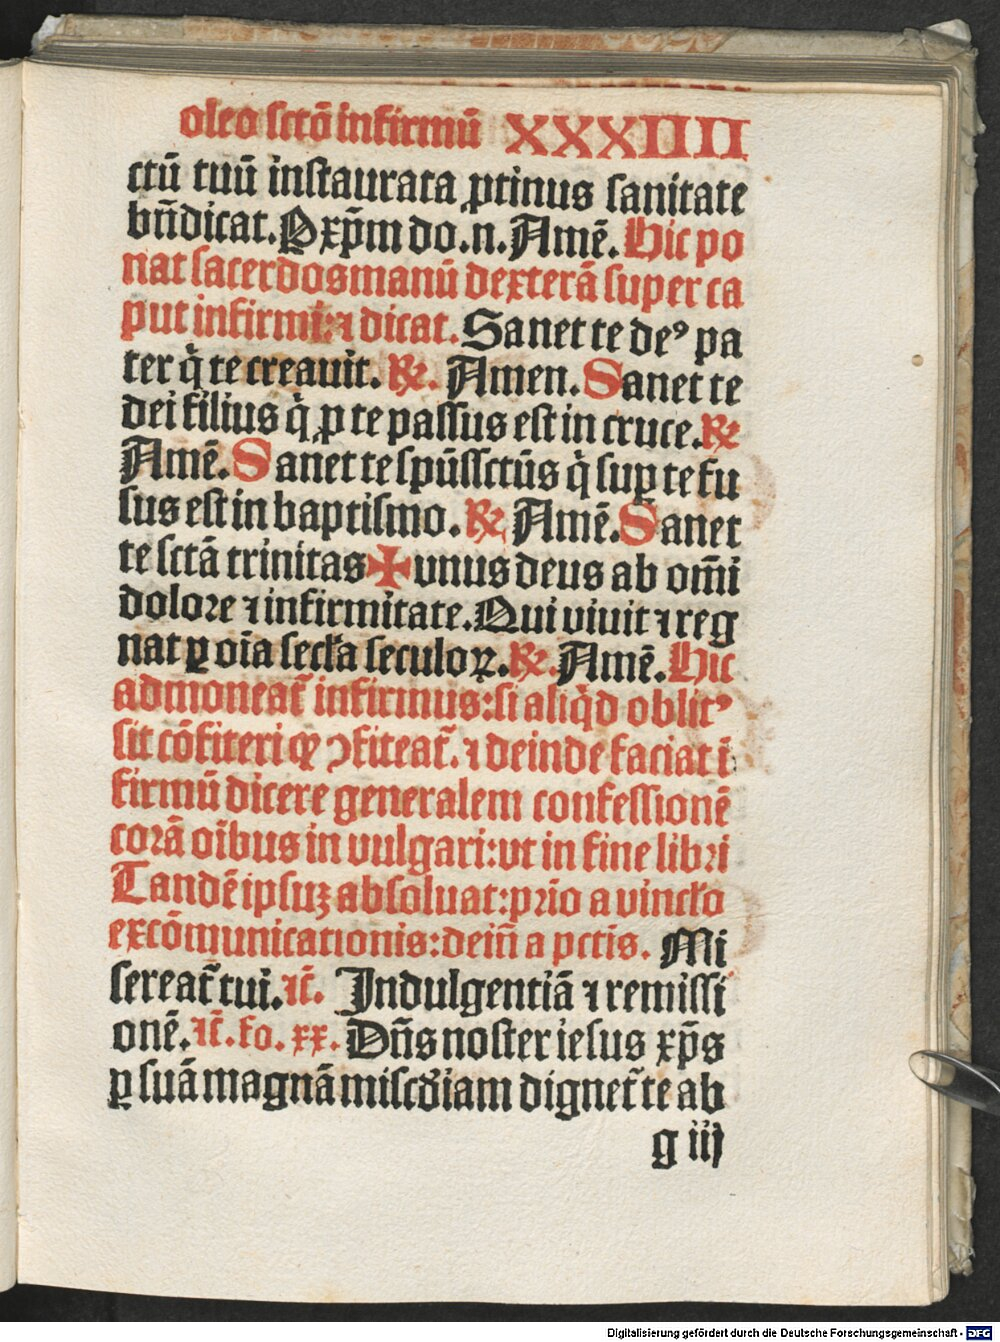 oleo sctō infirmū XXXIIII
ctū tuū instaurata ꝓtinus sanitate
bn̄dicat. P xp̄m do.n. Amē. Hic po
nat sacerdos manū dexterā super ca
put infirmi: ⁊ dicat. Sanet te deꝰ pa
ter q̇ te creauit. ℟. Amen. Sanet te
dei filius q̇ ꝓ te passus est in cruce. ℟
Amē. Sanet te spūssctūs q̇ suꝑ te fu
sus est in baptismo. ℟ Amē. Sanet
te sctā trinitas ✠ vnus deus ab om̄i
dolore ⁊ infirmitate. Qui viuit ⁊ reg
nat ꝑ oīa secl̄a seculoꝝ. ℟. Amē. Hic
admoneat̄ infirmus: si aliq̇d oblitꝰ
sit cōfiteri ꝙ ꝯfiteat̄. ⁊ deinde faciat ī
firmū dicere generalem confessionē
corā oībus in vulgari: vt in fine libri
Tandē ipsuꝫ absoluat: prīo a vincl̄o
excōmunicationis: dein̄ a pctīs. Mi
sereat̄ tui. ⁊c̄. Indulgentiā ⁊ remissi
onē. ⁊c̄. fo. xx. Dn̄s noster iesus xp̄s
ꝑ suā magnā miscd̄iam dignet̄ te ab
g iij
Digitalisierung gefördert durch die Deutsche Forschungsgemeinschaft - DFG